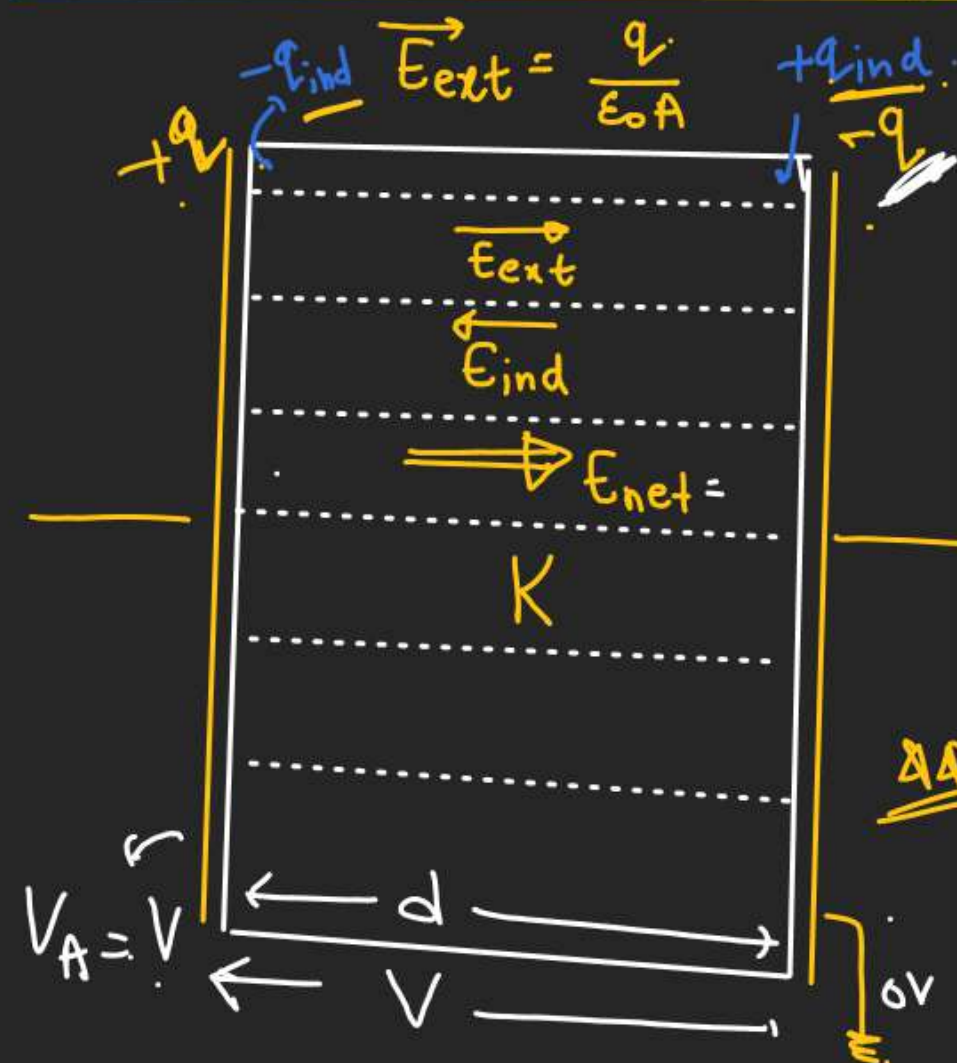 -q_ind E_ext = q / ε₀A +q_ind
+q -q
E_ext
E_ind
E_net =
K
d
V_A = V
V
0V